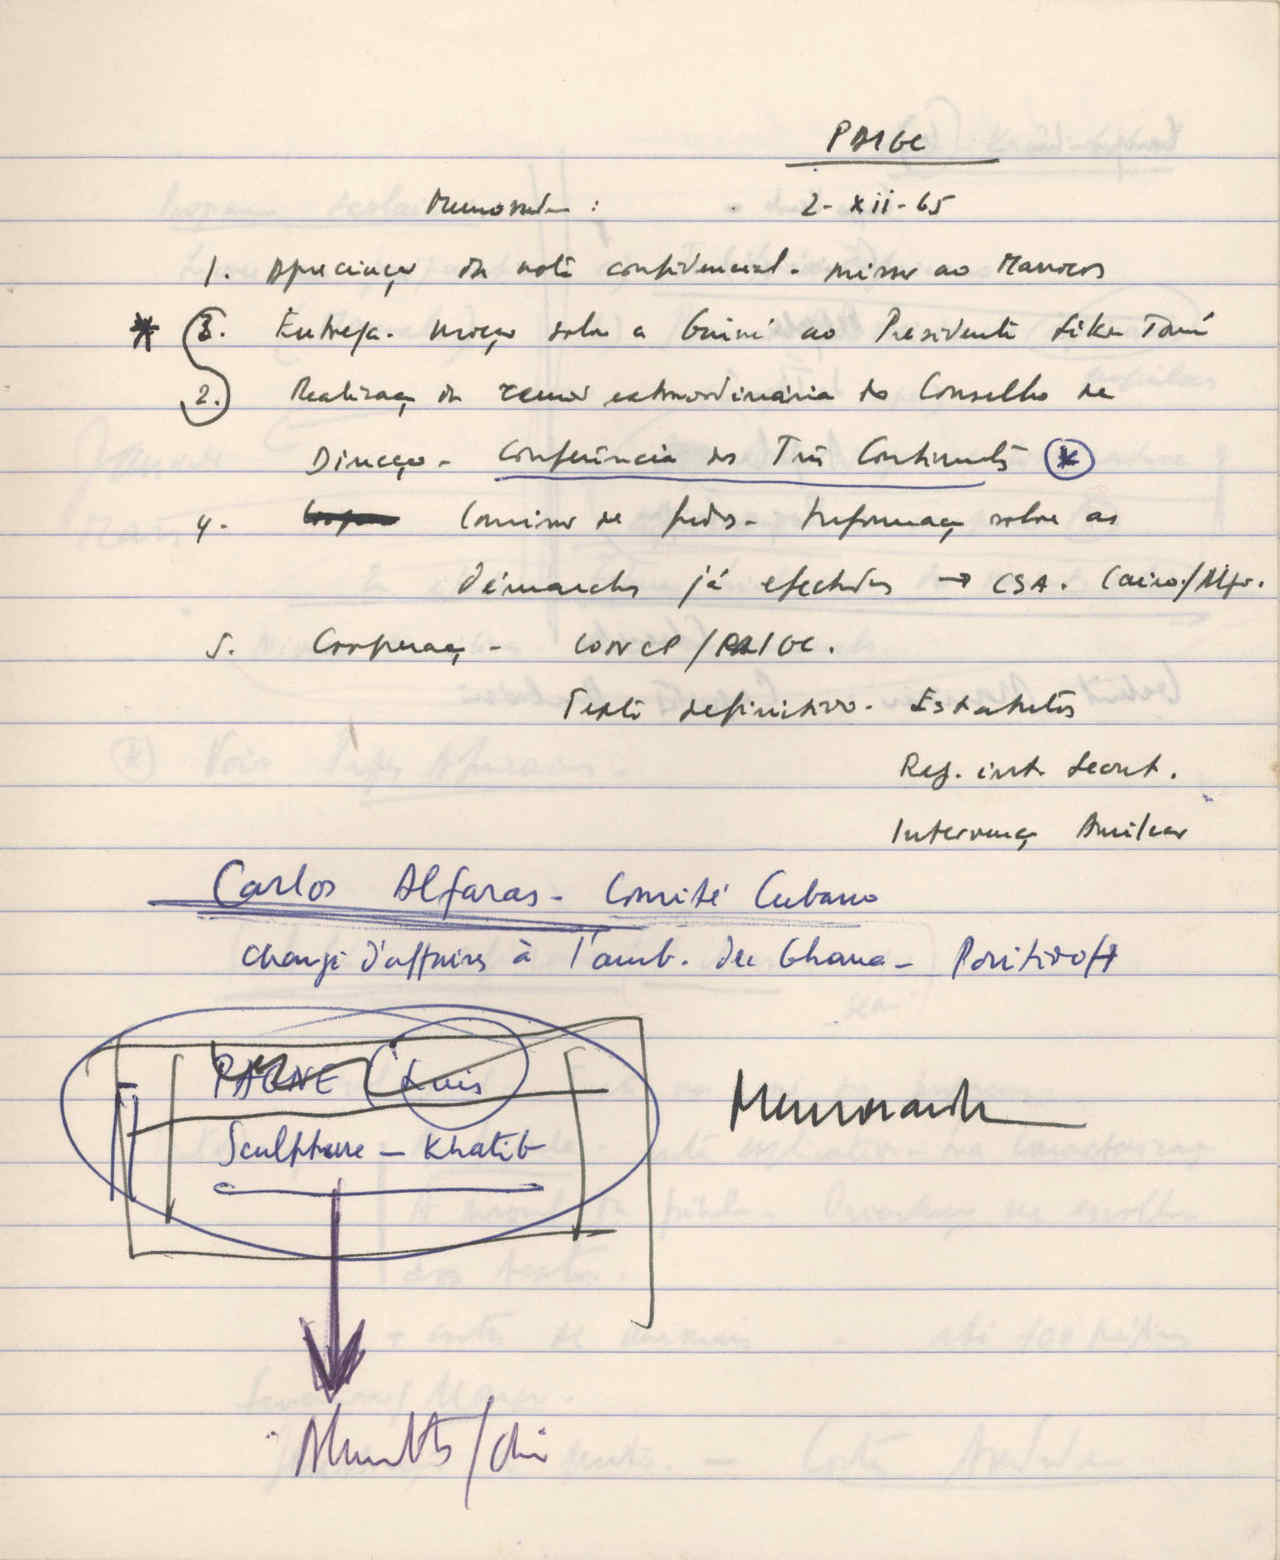 PAIGC
Memorandum : 2-XII-65
1. Apreciação da nota confidencial - missão ao Marrocos
* 3. Entrega - moção sobre a Guiné ao Presidente Séku Touré
2. Realização da reunião extraordinária do Conselho de
Direcção - Conferência dos Três Continentes *
4. Comissão de fundos - Informação sobre as
démarches já efectuadas → CSA. Cairo/Alger.
5. Cooperação - CONCP/PAIGC.
Texto definitivo - Estatutos
Reg. int. Secret.
Intervenção Amilcar
Carlos Alfaras - Comité Cubano
chargé d'affaires à l'amb. du Ghana -
PAGNE Luis
Sculpture - Khatib
Memorandum